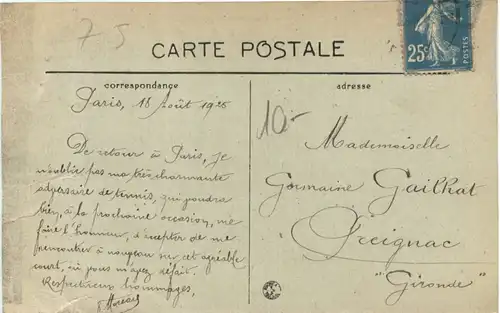 75
CARTE POSTALE
25c
POSTES
correspondance
adresse
Paris, 18 Août 1926
10-
De retour à Paris, je
n'oublie pas ma très charmante
adversaire de tennis, qui voudra
bien, à la prochaine occasion, me
faire l'honneur, d'accepter de me
rencontrer à nouveau sur cet agréable
court, où vous m'avez défait.
Respectueux hommages,
Mademoiselle
Germaine Gailhat
Preignac
"Gironde"